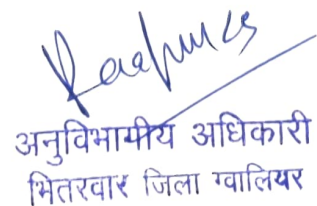 अनुविभागीय अधिकारी
भितरवार जिला ग्वालियर